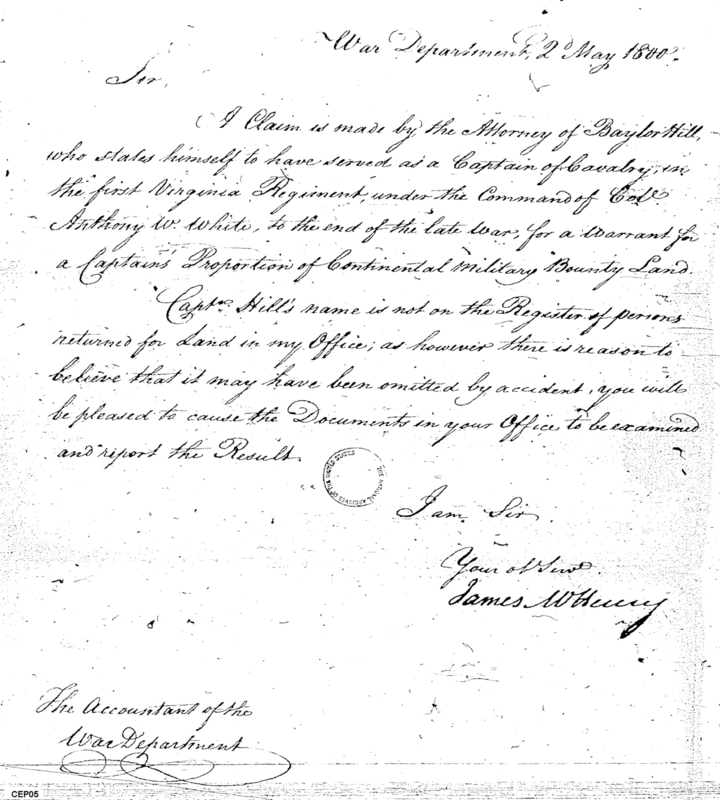 War Department, 2d May 1800.
Sir,
A Claim is made by the Attorney of Baylor Hill,
who states himself to have served as a Captain of Cavalry, in
the first Virginia Regiment, under the Command of Colo
Anthony W. White, to the end of the late War, for a Warrant for
a Captain's Proportion of Continental Military Bounty Land.
Captn. Hill's name is not on the Register of persons
returned for Land in my Office; as however there is reason to
believe that it may have been omitted by accident, you will
be pleased to cause the Documents in your Office to be examined
and report the Result.
THE NATIONAL ARCHIVES OF THE UNITED STATES
I am, Sir,
Your ob Servt.
James McHenry
The Accountant of the
War Department
CEP05